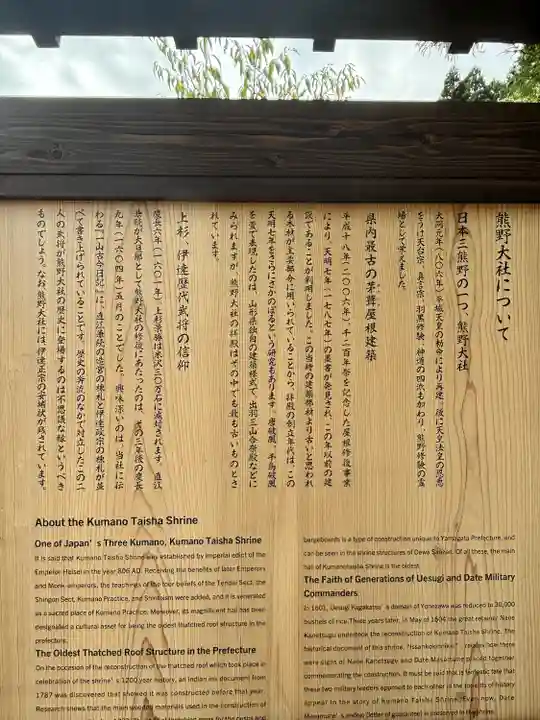 熊野大社について
日本三熊野の一つ、熊野大社
大同元年（八〇六年）平城天皇の勅命により再建。後に天皇法皇の恩恵
をうけ天台宗、真言宗、羽黒修験、神道の四派も加わり、熊野修験の霊
場として栄えました。
県内最古の茅葺屋根建築
平成十八年（二〇〇六年）千二百年祭を記念した屋根修復事業
により、天明七年（一七八七年）の墨書が発見され、この年以前の建
築であることが判明しました。この当時の建築部材より古いと思われ
る木材が主要部分に用いられていることから、拝殿の創立年代は、この
天明七年をさらにさかのぼるという研究もあります。唐破風、千鳥破風
を重て表現したのは、山形県独自の建築様式で、出羽三山合祭殿などに
みられますが、熊野大社の拝殿はその中でも最も古いものとさ
れています。
上杉、伊達歴代武将の信仰
慶長六年（一六〇一年）上杉景勝は米沢三〇万石に減封されます。直江
兼続が大旦那として熊野大社の修復にあたったのは、その三年後の慶長
九年（一六〇四年）五月のことでした。興味深いのは、当社に伝
わる『一山古今日記』に、直江兼続の造営の棟札と伊達政宗の棟札が並
べて書き上げられていることです。歴史の奔流のなかで対立したこの二
人の武将が熊野大社の歴史に登場するのは不思議な縁というべき
ものでしょう。なお、熊野大社には、伊達正宗の安堵状が残されています。
About the Kumano Taisha Shrine
One of Japan's Three Kumano, Kumano Taisha Shrine
It is said that Kumano Taisha Shrine was established by imperial edict of the
Emperor Heisei in the year 806 AD. Receiving the benefits of later Emperors
and Monk-emperors, the teachings of the four beliefs of the Tendai Sect, the
Shingon Sect, Kumano Practice, and Shintoism were added, and it is venerated
as a sacred place of Kumano Practice. Moreover, its magnificent hall has been
designated a cultural asset for being the oldest thatched roof structure in the
prefecture.
The Oldest Thatched Roof Structure in the Prefecture
On the occasion of the reconstruction of the thatched roof which took place in
celebration of the shrine's 1200 year history, an Indian ink document from
1787 was discovered that showed it was constructed before that year.
Research shows that the main wooden materials used in the construction of
bargeboards is a type of construction unique to Yamagata Prefecture, and
can be seen in the shrine structures of Dewa Sanzan. Of all these, the main
hall of Kumanotaisha Shrine is the oldest.
The Faith of Generations of Uesugi and Date Military
Commanders
In 1601, Uesugi Kagekatsu's domain of Yonezawa was reduced to 30,000
bushels of rice. Three years later, in May of 1604 the great retainer Naoe
Kanetsugu undertook the reconstruction of Kumano Taisha Shrine. The
historical document of this shrine, "Issankokonikki," records how there
were signs of Naoe Kanetsugu and Date Masamune placed together
commemorating the construction. It must be said that is fantastic fate that
these two military leaders opposed to each other in the rapids of history
appear in the story of Kumano Taisha Shrine. Even now, Date